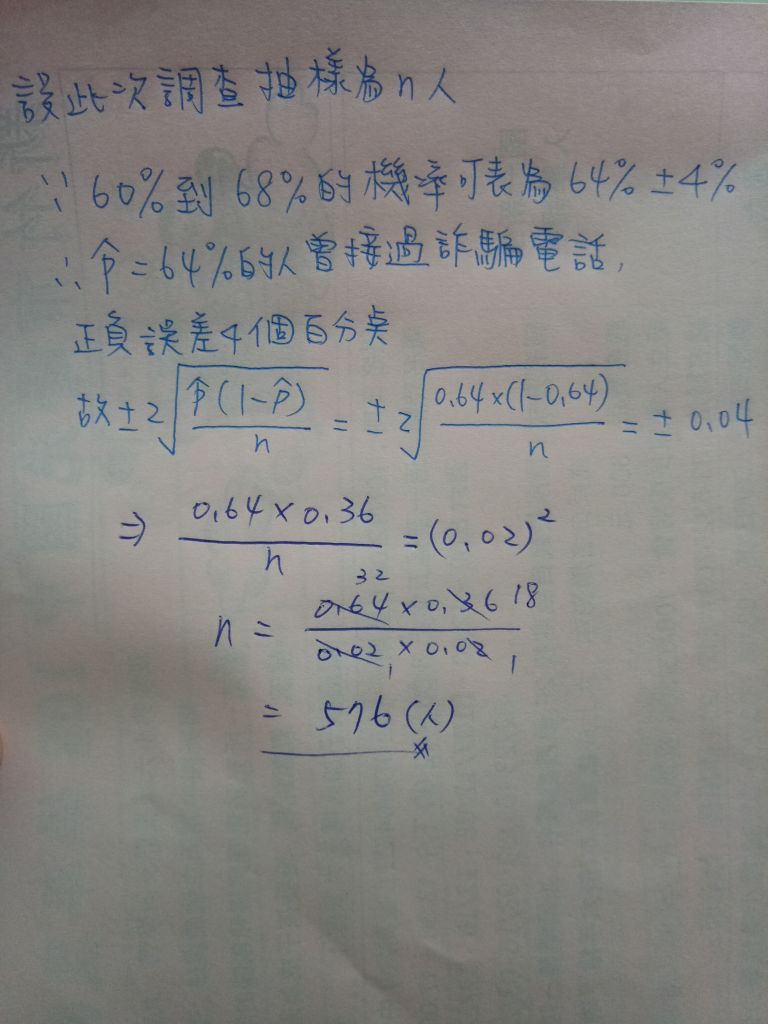 設此次調查抽樣為n人
∵60%到68%的機率可表為64%±4%
∴p̂=64%的人曾接過詐騙電話,
正負誤差4個百分点
故±2√(p̂(1-p̂)/n) = ±2√(0.64×(1-0.64)/n) = ±0.04
⇒ 0.64×0.36/n = (0.02)²
n = 0.64×0.36/0.02×0.02 32 18 1 1
= 576(人)